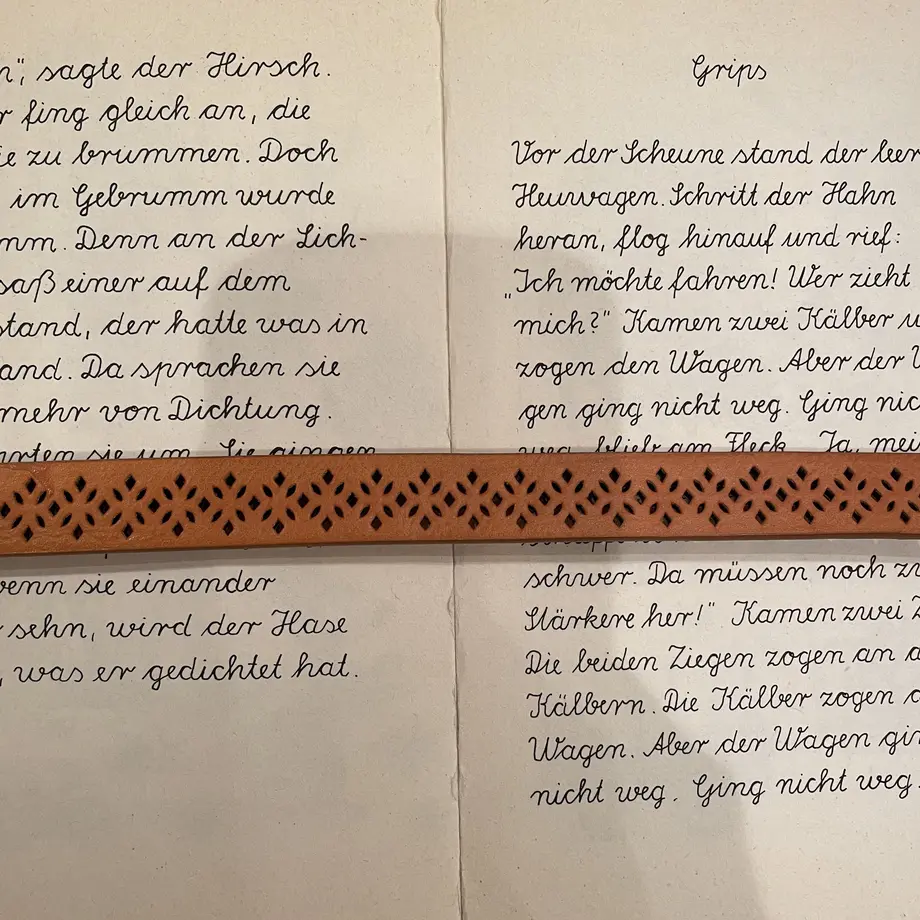 sagte der Hirsch.
fing gleich an, die
zu brummen. Doch
im Gebrumm wurde
Denn an der Lich-
saß einer auf dem
stand, der hatte was in
Da sprachen sie
mehr von Dichtung.
sie um. Sie gingen
wenn sie einander
sehn, wird der Hase
was er gedichtet hat.
Grips
Vor der Scheune stand der
Heuwagen. Schritt der Hahn
heran, flog hinauf und rief:
„Ich möchte fahren! Wer zieht
mich?" Kamen zwei Kälber
zogen den Wagen. Aber der
gen ging nicht weg. Ging
weg, blieb am Fleck. Ja,
schwer. Da müssen noch
Stärkere her!" Kamen zwei
Die beiden Ziegen zogen an
Kälbern. Die Kälber zogen
Wagen. Aber der Wagen
nicht weg. Ging nicht weg.